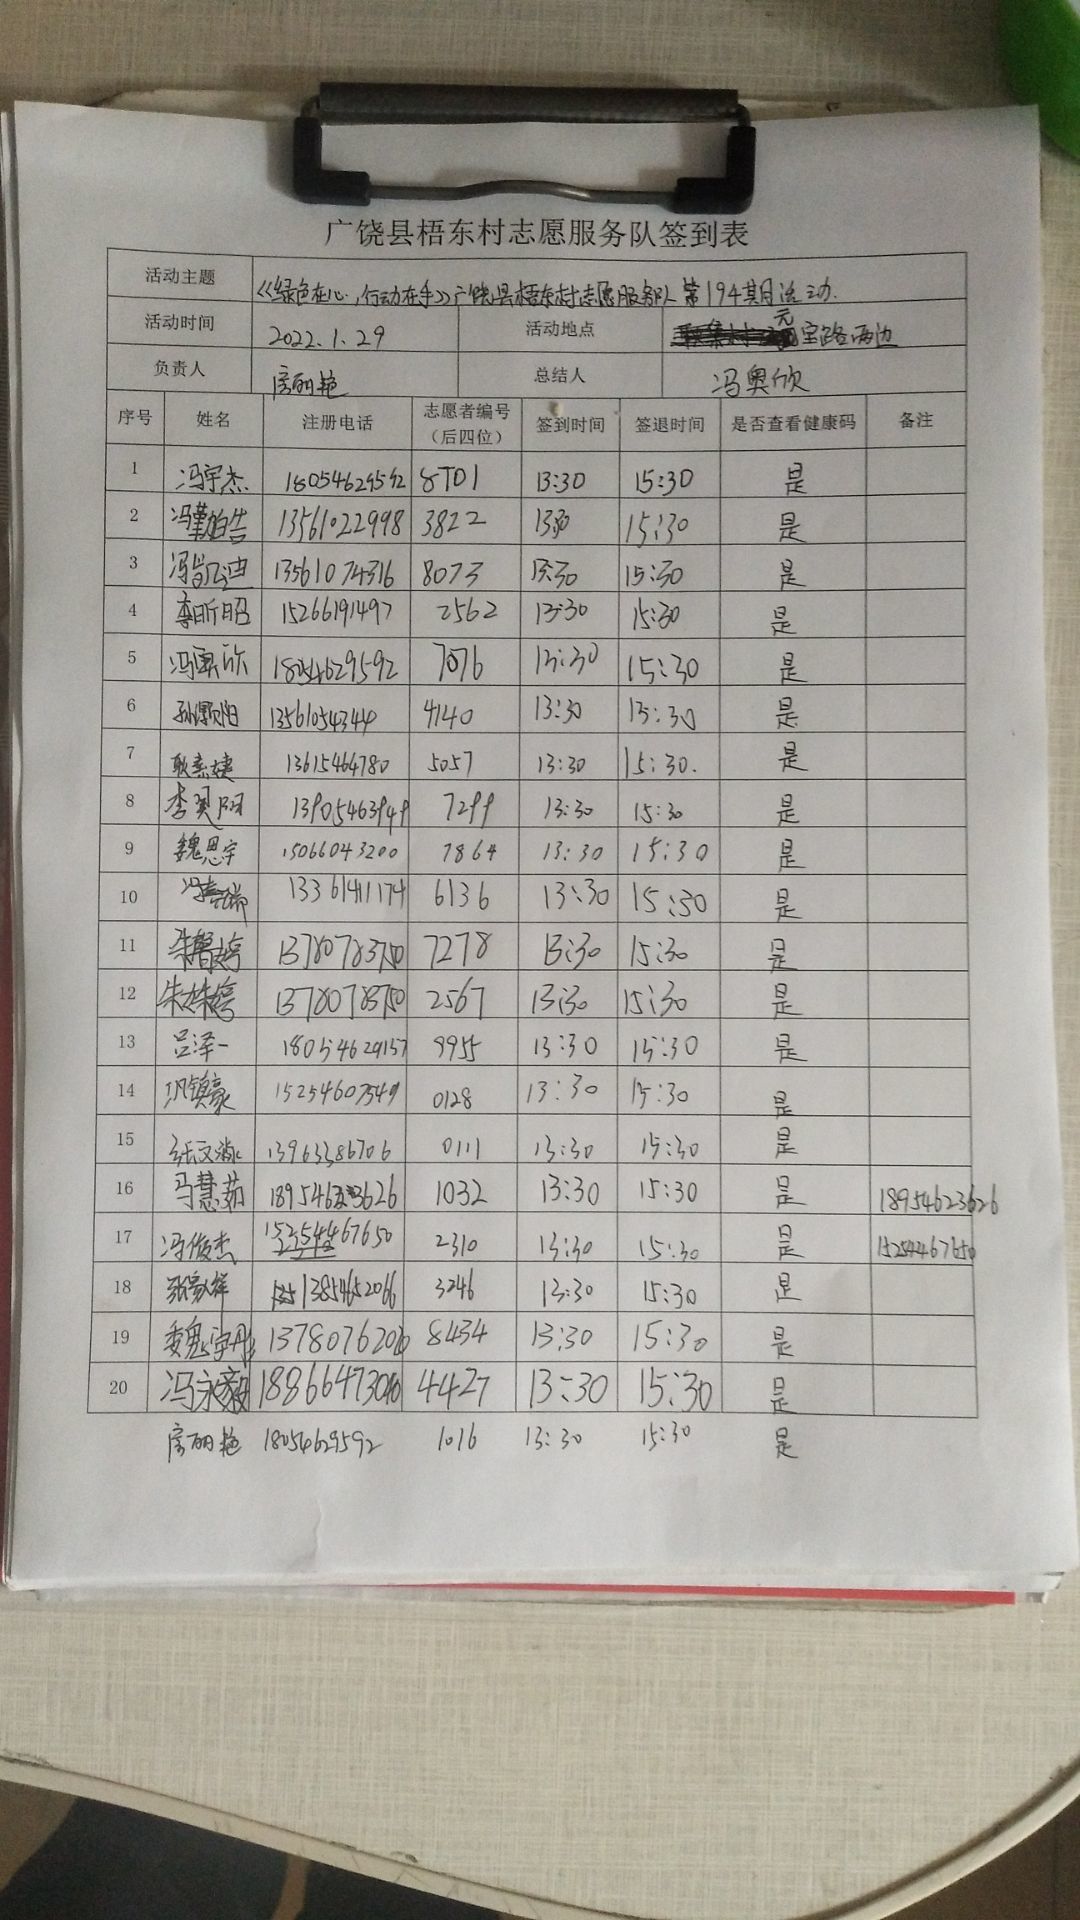 广饶县梧东村志愿服务队签到表
活动主题 《绿色在心,行动在手》广饶县梧东村志愿服务队第194期月活动.
活动时间 2022.1.29 活动地点 元宝路两边
负责人 房丽艳 总结人 冯奥欣
序号 姓名 注册电话 志愿者编号(后四位) 签到时间 签退时间 是否查看健康码 备注
1 冯宇杰 18054629592 8701 13:30 15:30 是
2 13561022998 3822 13:30 15:30 是
3 冯凯迪 13561074316 8073 13:30 15:30 是
4 李昕昭 15266191497 2562 13:30 15:30 是
5 冯奥欣 18054629592 7076 13:30 15:30 是
6 孙灏阳 13561054344 4140 13:30 15:30 是
7 13615464780 5057 13:30 15:30. 是
8 13905463949 7299 13:30 15:30 是
9 魏思宇 15066043200 7864 13:30 15:30 是
10 13361411174 6136 13:30 15:30 是
11 朱馨婷 13780783750 7278 13:30 15:30 是
12 朱姝婷 13780783750 2567 13:30 15:30 是
13 吕泽一 18054629157 9955 13:30 15:30 是
14 巩镇豪 15254607549 0128 13:30 15:30 是
15 13963386706 0111 13:30 15:30 是
16 马慧茹 18954623626 1032 13:30 15:30 是 18954623626
17 冯俊杰 15254467650 2310 13:30 15:30 是 15254467650
18 13854652066 3246 13:30 15:30 是
19 8434 13:30 15:30 是
20 冯永毅 4427 13:30 15:30 是
房丽艳 18054629592 1016 13:30 15:30 是